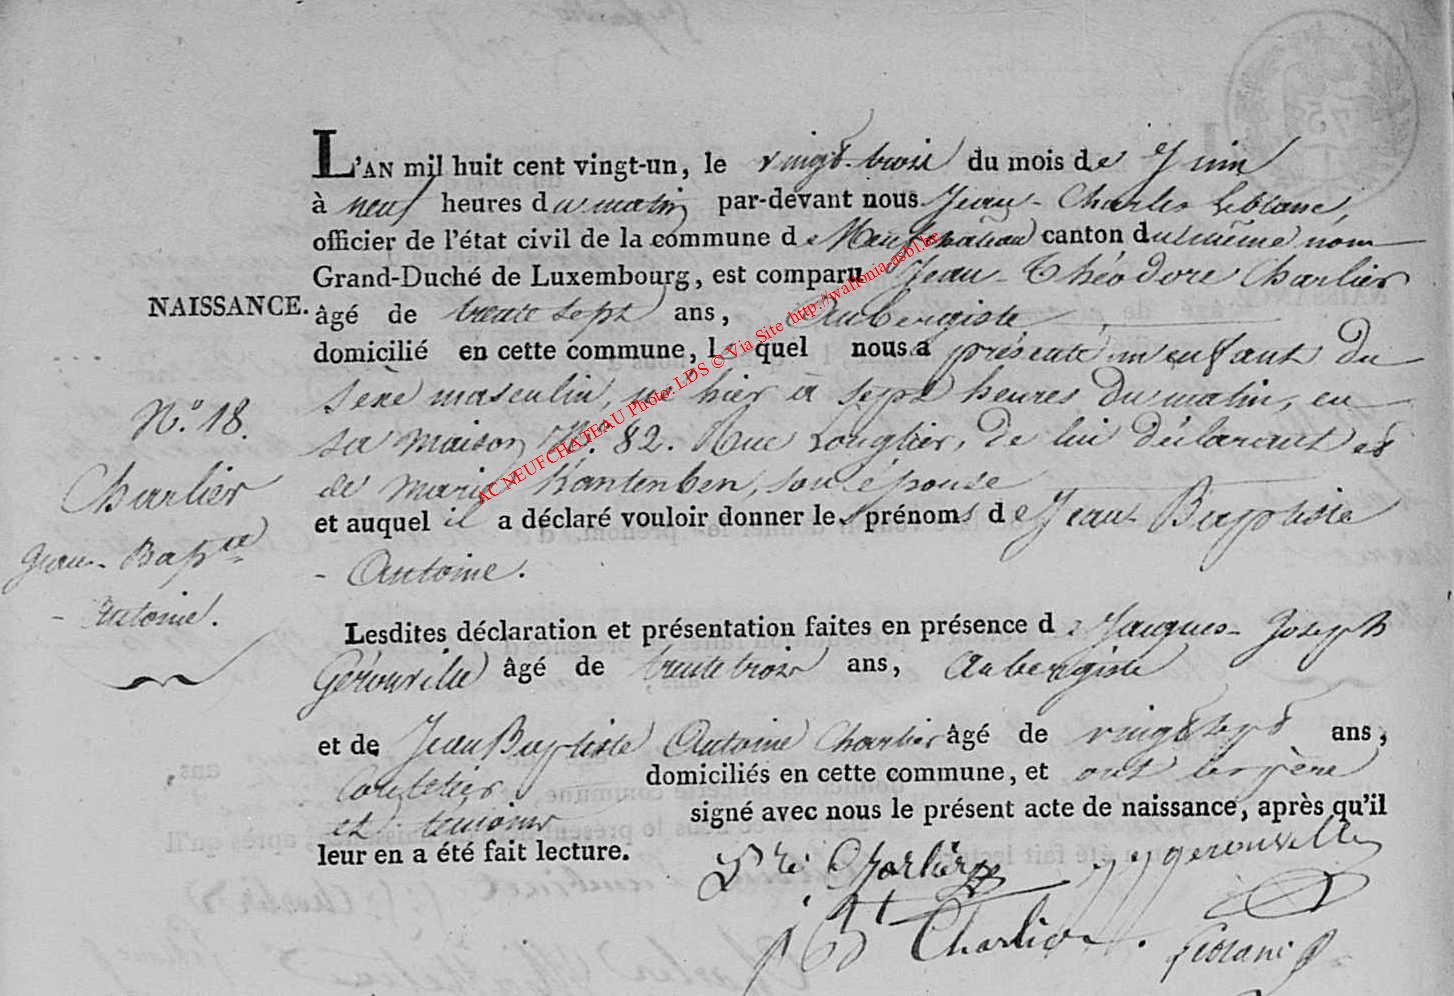 L'AN mil huit cent vingt-un, le vingt-trois du mois de Juin
à neuf heures du matin par-devant nous Jean-Charles Leblanc,
officier de l'état civil de la commune de Neufchateau canton du même nom
Grand-Duché de Luxembourg, est comparu Jean-Théodore Charlier
NAISSANCE. âgé de trente sept ans, Aubergiste
domicilié en cette commune, lequel nous a présenté un enfant du
sexe masculin, né hier à sept heures du matin, en
sa maison N.° 82. Rue Longlier, de lui déclarant et
de Marie son épouse
et auquel il a déclaré vouloir donner les prénoms de Jean-Baptiste
- Antoine.
N.° 18.
Charlier
Jean-Bap.te
- Antoine.
Lesdites déclaration et présentation faites en présence de Jacques-Joseph
Gérouville âgé de trente trois ans, Aubergiste
et de Jean Baptiste Antoine Charlier âgé de vingt sept ans,
Coutelier domiciliés en cette commune, et ont le père
et témoins signé avec nous le présent acte de naissance, après qu'il
leur en a été fait lecture.
Charlier
JJ gerouville
J Bt Charlier.
Leblanc
AC NEUFCHATEAU Photo: LDS © Via Site http://wallonia-asbl.be